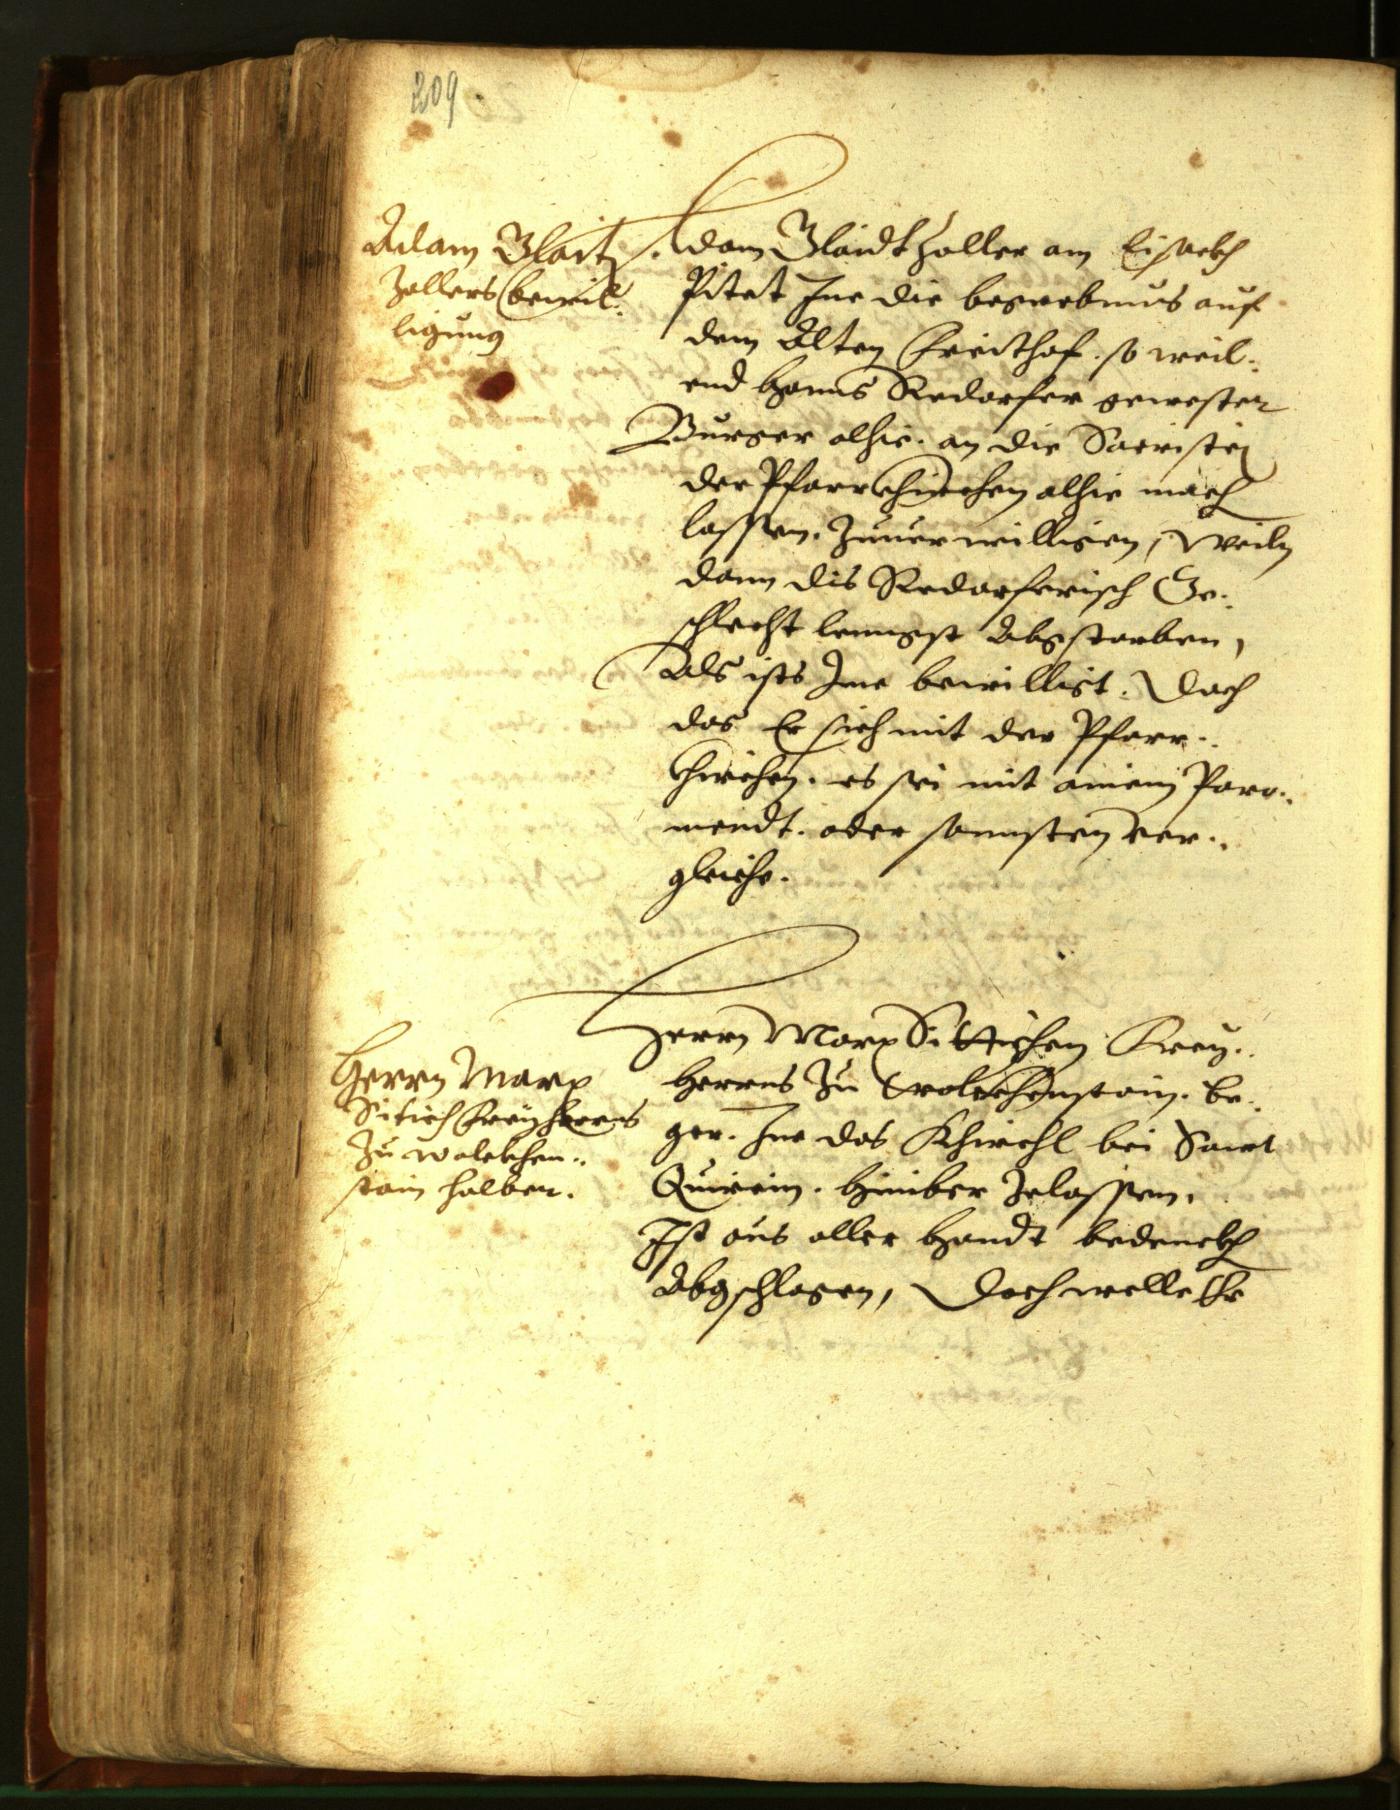 209
Adam Blait
Zollers bewil:
ligung
Adam Blaidt Zoller am Eisackh
Pitet Jne die begrebnus auf
dem Alten Freithof. so weil:
end Hanns Redorfer gewester
Burger alhie. an die Sacristei
der Pfarrkhirchen alhie mach
lassen. Zuuerwilligen, Weiln
dann dis Redorferisch Ge:
schlecht lenngst Abgstorben,
Als ists Jme bewilligt. Doch
das Er sich mit der Pfarr:
khirchen. es sei mit ainem Para:
mendt. oder sonnsten ver:
gleiche.
Herrn Marx
Sitich Freyherrns
Zu wolckhen:
stain halben.
Herrn Marx Sittichen Frey:
herrns Zu Wolckhenstain. be:
ger. Jne das Khirchl bei Sanct
Quirein. hinüber Zelassen.
Ist aus aller handt bedenckh
Abgschlagen, Doch welle Er